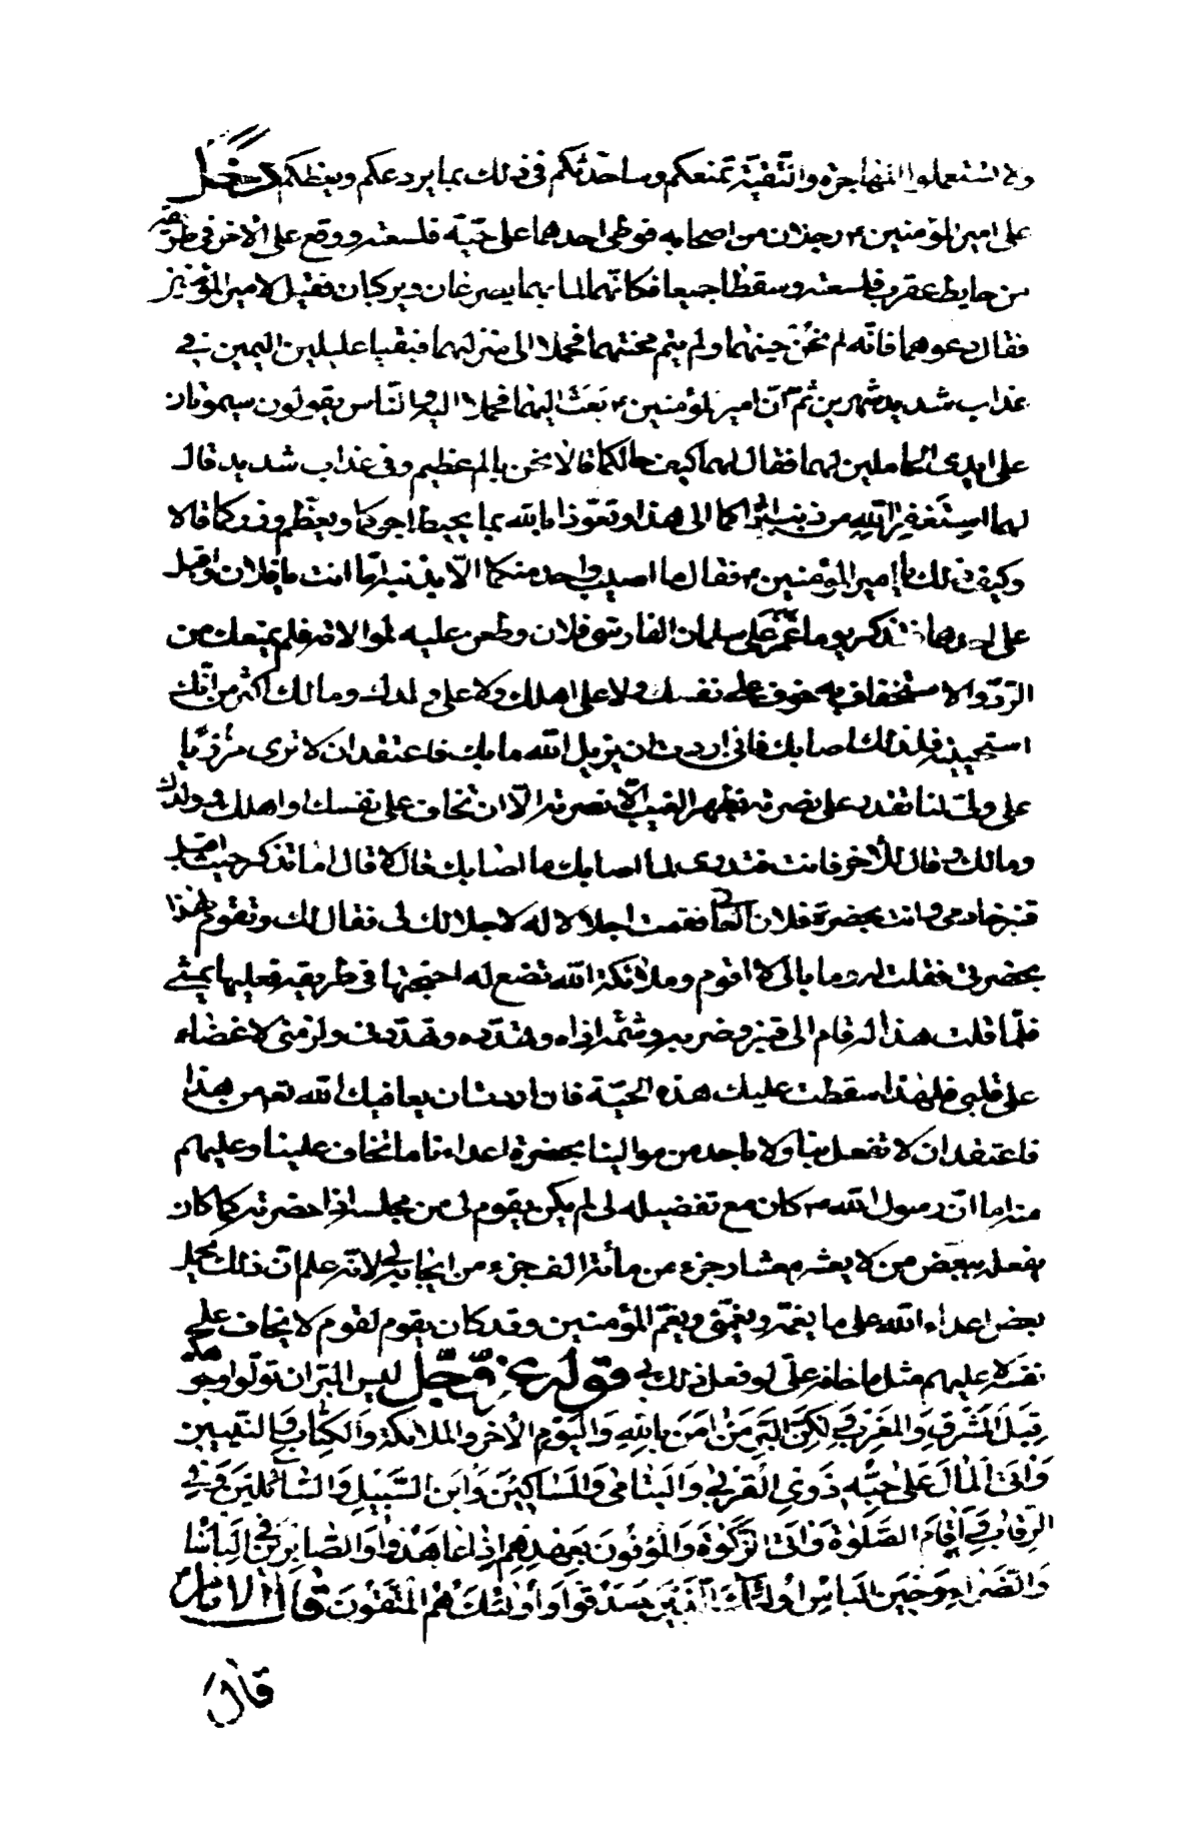 ولا تستعملوا المهاجرة والتقية تمنعكم وساحدثكم فى ذلك بما يردعكم ويعظكم دخل
على امير المؤمنين ع رجلان من اصحابه فوطى احدهما على حيّة فلسعته ووقع على الآخر فى طريقه
من حايط عقرب فلسعته وسقطا جميعا فكانهما لما بهما يضرعان ويبكيان فقيل لامير المؤمنين
فقال دعوهما فانّه لم يحن حينهما ولم يتم محنتهما فحملا الى منزلهما فبقيا عليلين اليمين فى
عذاب شديد شهرين ثم انّ امير المؤمنين ع بعث اليهما فحملا اليه والنّاس يقولون سيموتان
على ايدى الحاملين لهما فقال لهما كيف حالكما قالا نحن بالم عظيم وفى عذاب شديد قال
لهما استغفرا الله من ذنب ادّاكما الى هذا وتعوّذا بالله بما يحبط اجركما ويعظم وزركما قالا
وكيف ذلك يا امير المؤمنين ع فقال ما اصيب واحد منكما الّا بذنبه امّا انت يا فلان واقبل
على احدهما تذكر يوم غمز على سلمان الفارسى فلان وطعن عليه لموالاته فلم يمنعك من
الردّ والاستخفاف به خوف على نفسك ولا على اهلك ولا على ولدك ومالك اكثر من انّك
استحييته فلذلك اصابك فان اردت ان يزيل الله ما بك فاعتقد ان لا ترى مزرئا
على ولىّ لنا تقدر على نصرته بظهر الغيب الّا نصرته الّا ان تخاف على نفسك واهلك وولدك
ومالك وقال للآخر فانت فتدرى لما اصابك ما اصابك قال لا قال اما تذكر حيث اقبل
قنبر خادمى وانت بحضرة فلان العاتى فقمت اجلالا له لاجلالك لى فقال لك وتقوم لهذا
بحضرتى فقلت له وما بالى لا اقوم وملائكة الله تضع له اجنحتها فى طريقه فعليها يمشى
فلمّا قلت هذا له قام الى قنبر وضربه وشتمه واذاه وتهدده وتهدّدنى ولزمنى الاغضاء
على قذى فلهذا سقطت عليك هذه الحيّة فان اردت ان يعافيك الله تعم من هذا
فاعتقد ان لا تفعل بنا ولا باحد من موالينا بحضرة اعداءنا ما تخاف علينا وعليهم
منه اما انّ رسول الله ص كان مع تفضيله لى لم يكن يقوم لى من مجلسه اذا حضرته كما كان
يفعله ببعض من لا يعشر معشار جزء من مأة الف جزء من ايجابه لى لانّه علم انّ ذلك يحمل
بعض اعداء الله على ما يغمّه ويغمّنى ويغمّ المؤمنين وقد كان يقوم لقوم لا يخاف على
نفسه ولا عليهم مثل ما خافه علىّ لو فعل ذلك بى قوله عزّ وجّل ليس البّر ان تولّوا وجوهكم
قِبَلَ المَشْرِقِ وَالمَغْرِبِ وَلكِنّ البِّرَ مَنْ امَنَ بِاللهِ وَاليَوْمِ الآخر والملائكة وَالكِتابِ وَالنّبيّين
وَاتَى المالَ عَلى حُبّهِ ذَوِى القُربى وَاليَتامى وَالمَساكِينَ وَابنَ السَّبِيلِ وَالسّائِلينَ وَفِى
الرّقابِ وَاَقامَ الصَلوةَ وَاتَى الزّكوةَ وَالمُوفُونَ بِعَهْدِهِم اِذا عاهَدُوا وَالصّابِرينَ فِى البَأساء
وَالضّرّاء وَحِينَ البَأسِ اُولئِكَ الّذينَ صَدَقُوا وَاُولئِكَ هُمُ المُتّقُونَ قال الامام
قال